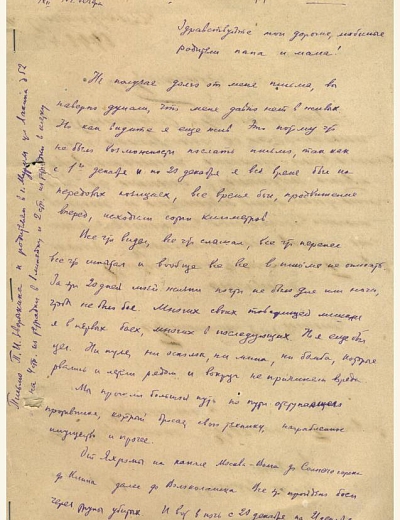 Здравствуйте мои дорогие, любимые
родители папа и мама!
"Не получая долго от меня письма, вы
наверно думали, что меня давно нет в живых.
Но как видите я еще жив. Это потому что
не было возможности послать письмо, так как
с 1го декабря и по 20 декабря я все время был на
передовых позициях, все время бои, продвижение
вперед, исходили сотни километров!
Все что видел, все что слышал, все что перенес
все что испытал и вообще все все в письме не описать.
За эти 20 дней моей жизни почти не было дня или ночи,
чтобы не было боя. Многих своих товарищей лишился
я в первых боях, многих в последующих. Но я еще был
цел. Ни пуля, ни осколок, ни мина, ни бомба, которые
рвались и лежали рядом и вокруг не причинили вреда.
Мы прошли большой путь по пути отступающего
противника, который бросал свою технику, награбленное
имущество и прочее.
От Яхромы на канале Москва-Волга до Солнечногорска
до Клина далее до Волоколамска. Все это пройдено боем
через трупы убитых. И вот в ночь с 20 декабря на
Письмо П.И. к родителям в г. Муром ул. Ленина д 52